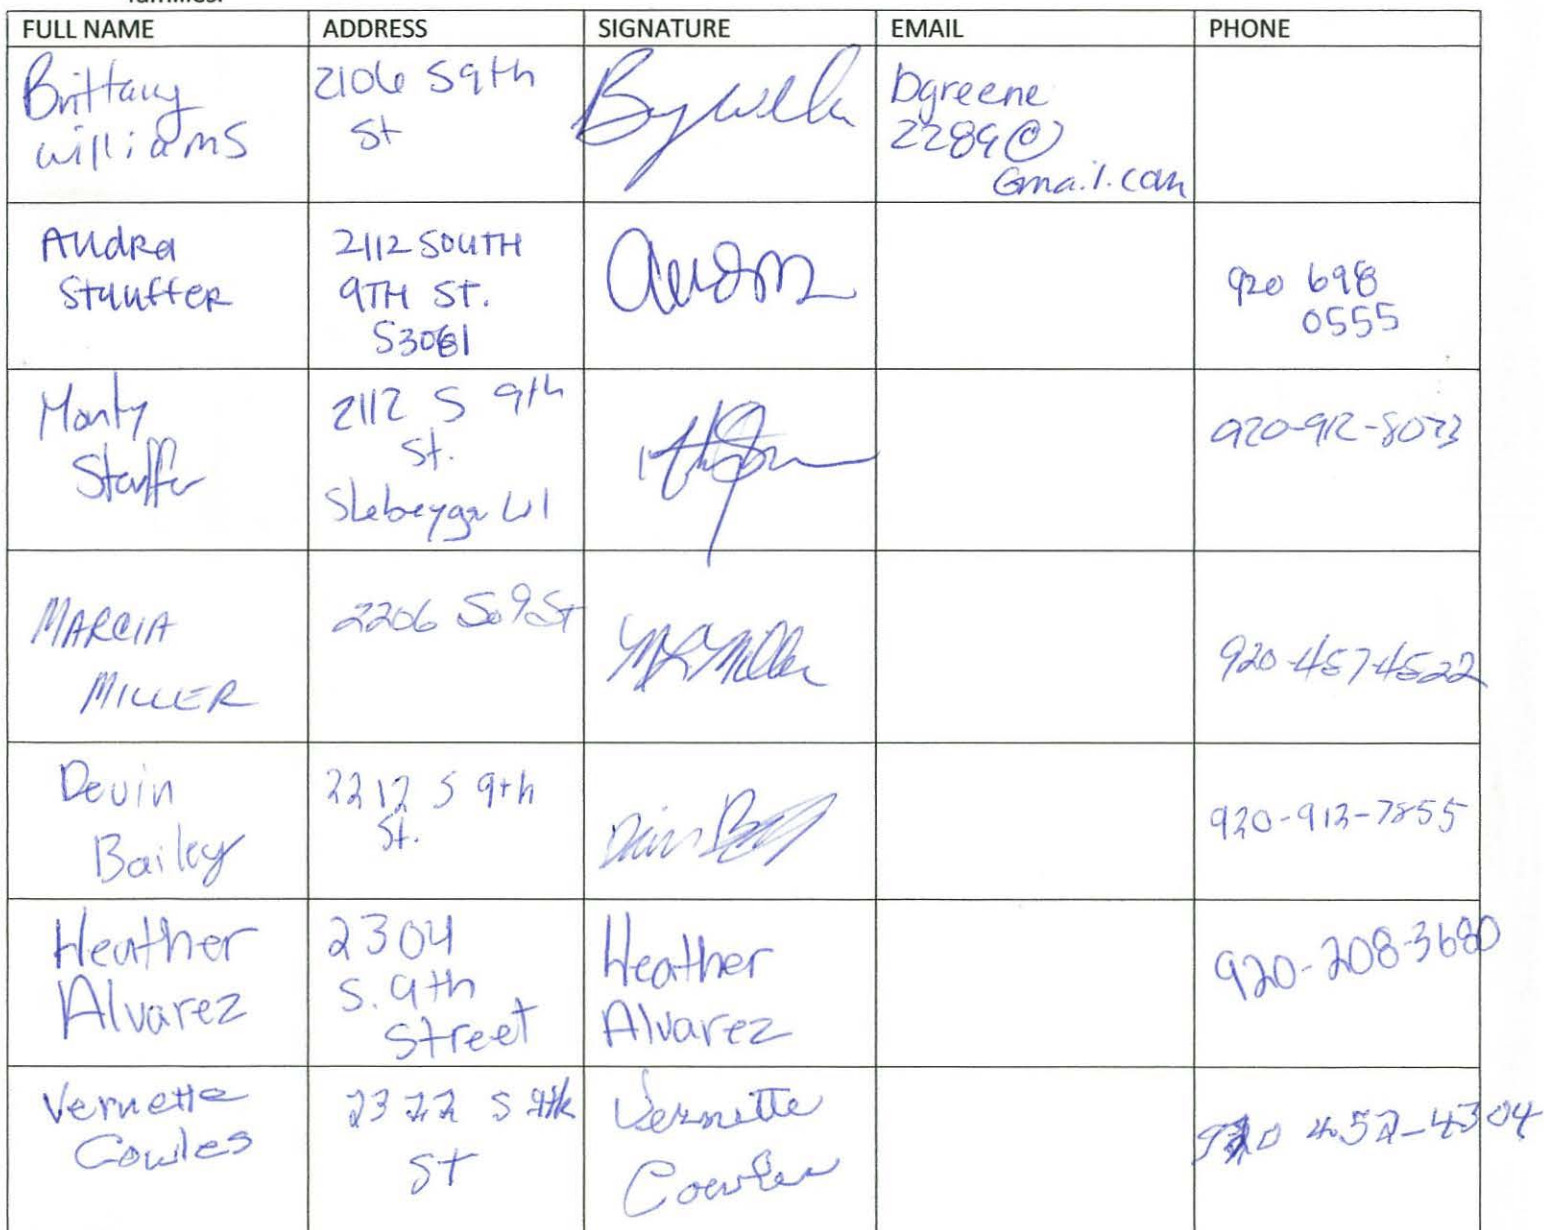 families.
FULL NAME ADDRESS SIGNATURE EMAIL PHONE
Brittany
Williams
2106 S 9th
St
Dgreene
2289@
Gmail.com
Audra
Stauffer
2112 SOUTH
9TH ST.
53081
920 698
0555
Monty
Stauffer
2112 S 9th
St.
Sheboygan WI
920-912-8073
MARCIA
MILLER
2206 So 9 St
MRMiller
920-457-4522
Devin
Bailey
2212 S 9th
St.
920-912-7855
Heather
Alvarez
2304
S. 9th
Street
Heather
Alvarez
920-208-3680
Vernette
Cowles
2322 S 9th
St
Vernette
Cowles
920 452-4304